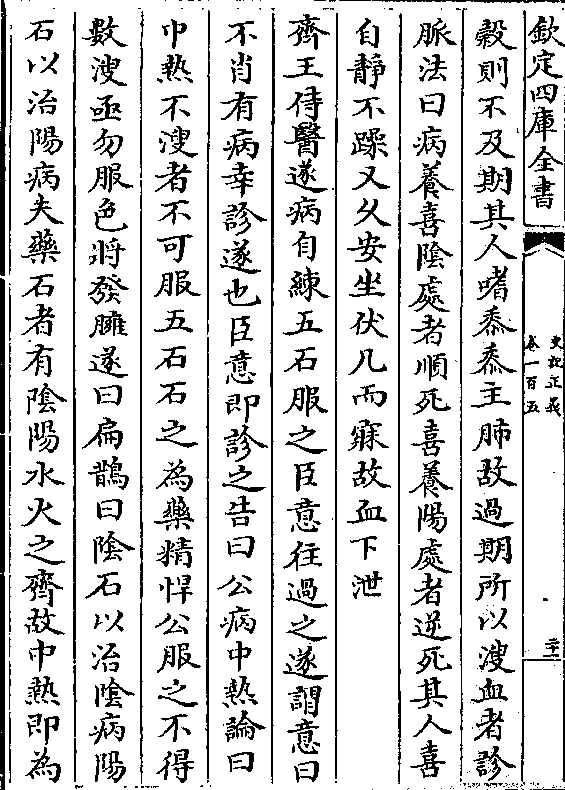 欽定四庫全書
史記正義
卷一百五
二十一
穀則不及期其人嗜黍黍主肺故過期所以溲血者診
脈法曰病養喜陰處者順死喜養陽處者逆死其人喜
自靜不躁又久安坐伏几而寐故血下泄
齊王侍醫遂病自練五石服之臣意往過之遂謂意曰
不肖有病幸診遂也臣意即診之告曰公病中熱論曰
中熱不溲者不可服五石石之為藥精悍公服之不得
數溲亟勿服色將發臃遂曰扁鵲曰陰石以治陰病陽
石以治陽病夫藥石者有陰陽水火之齊故中熱即為